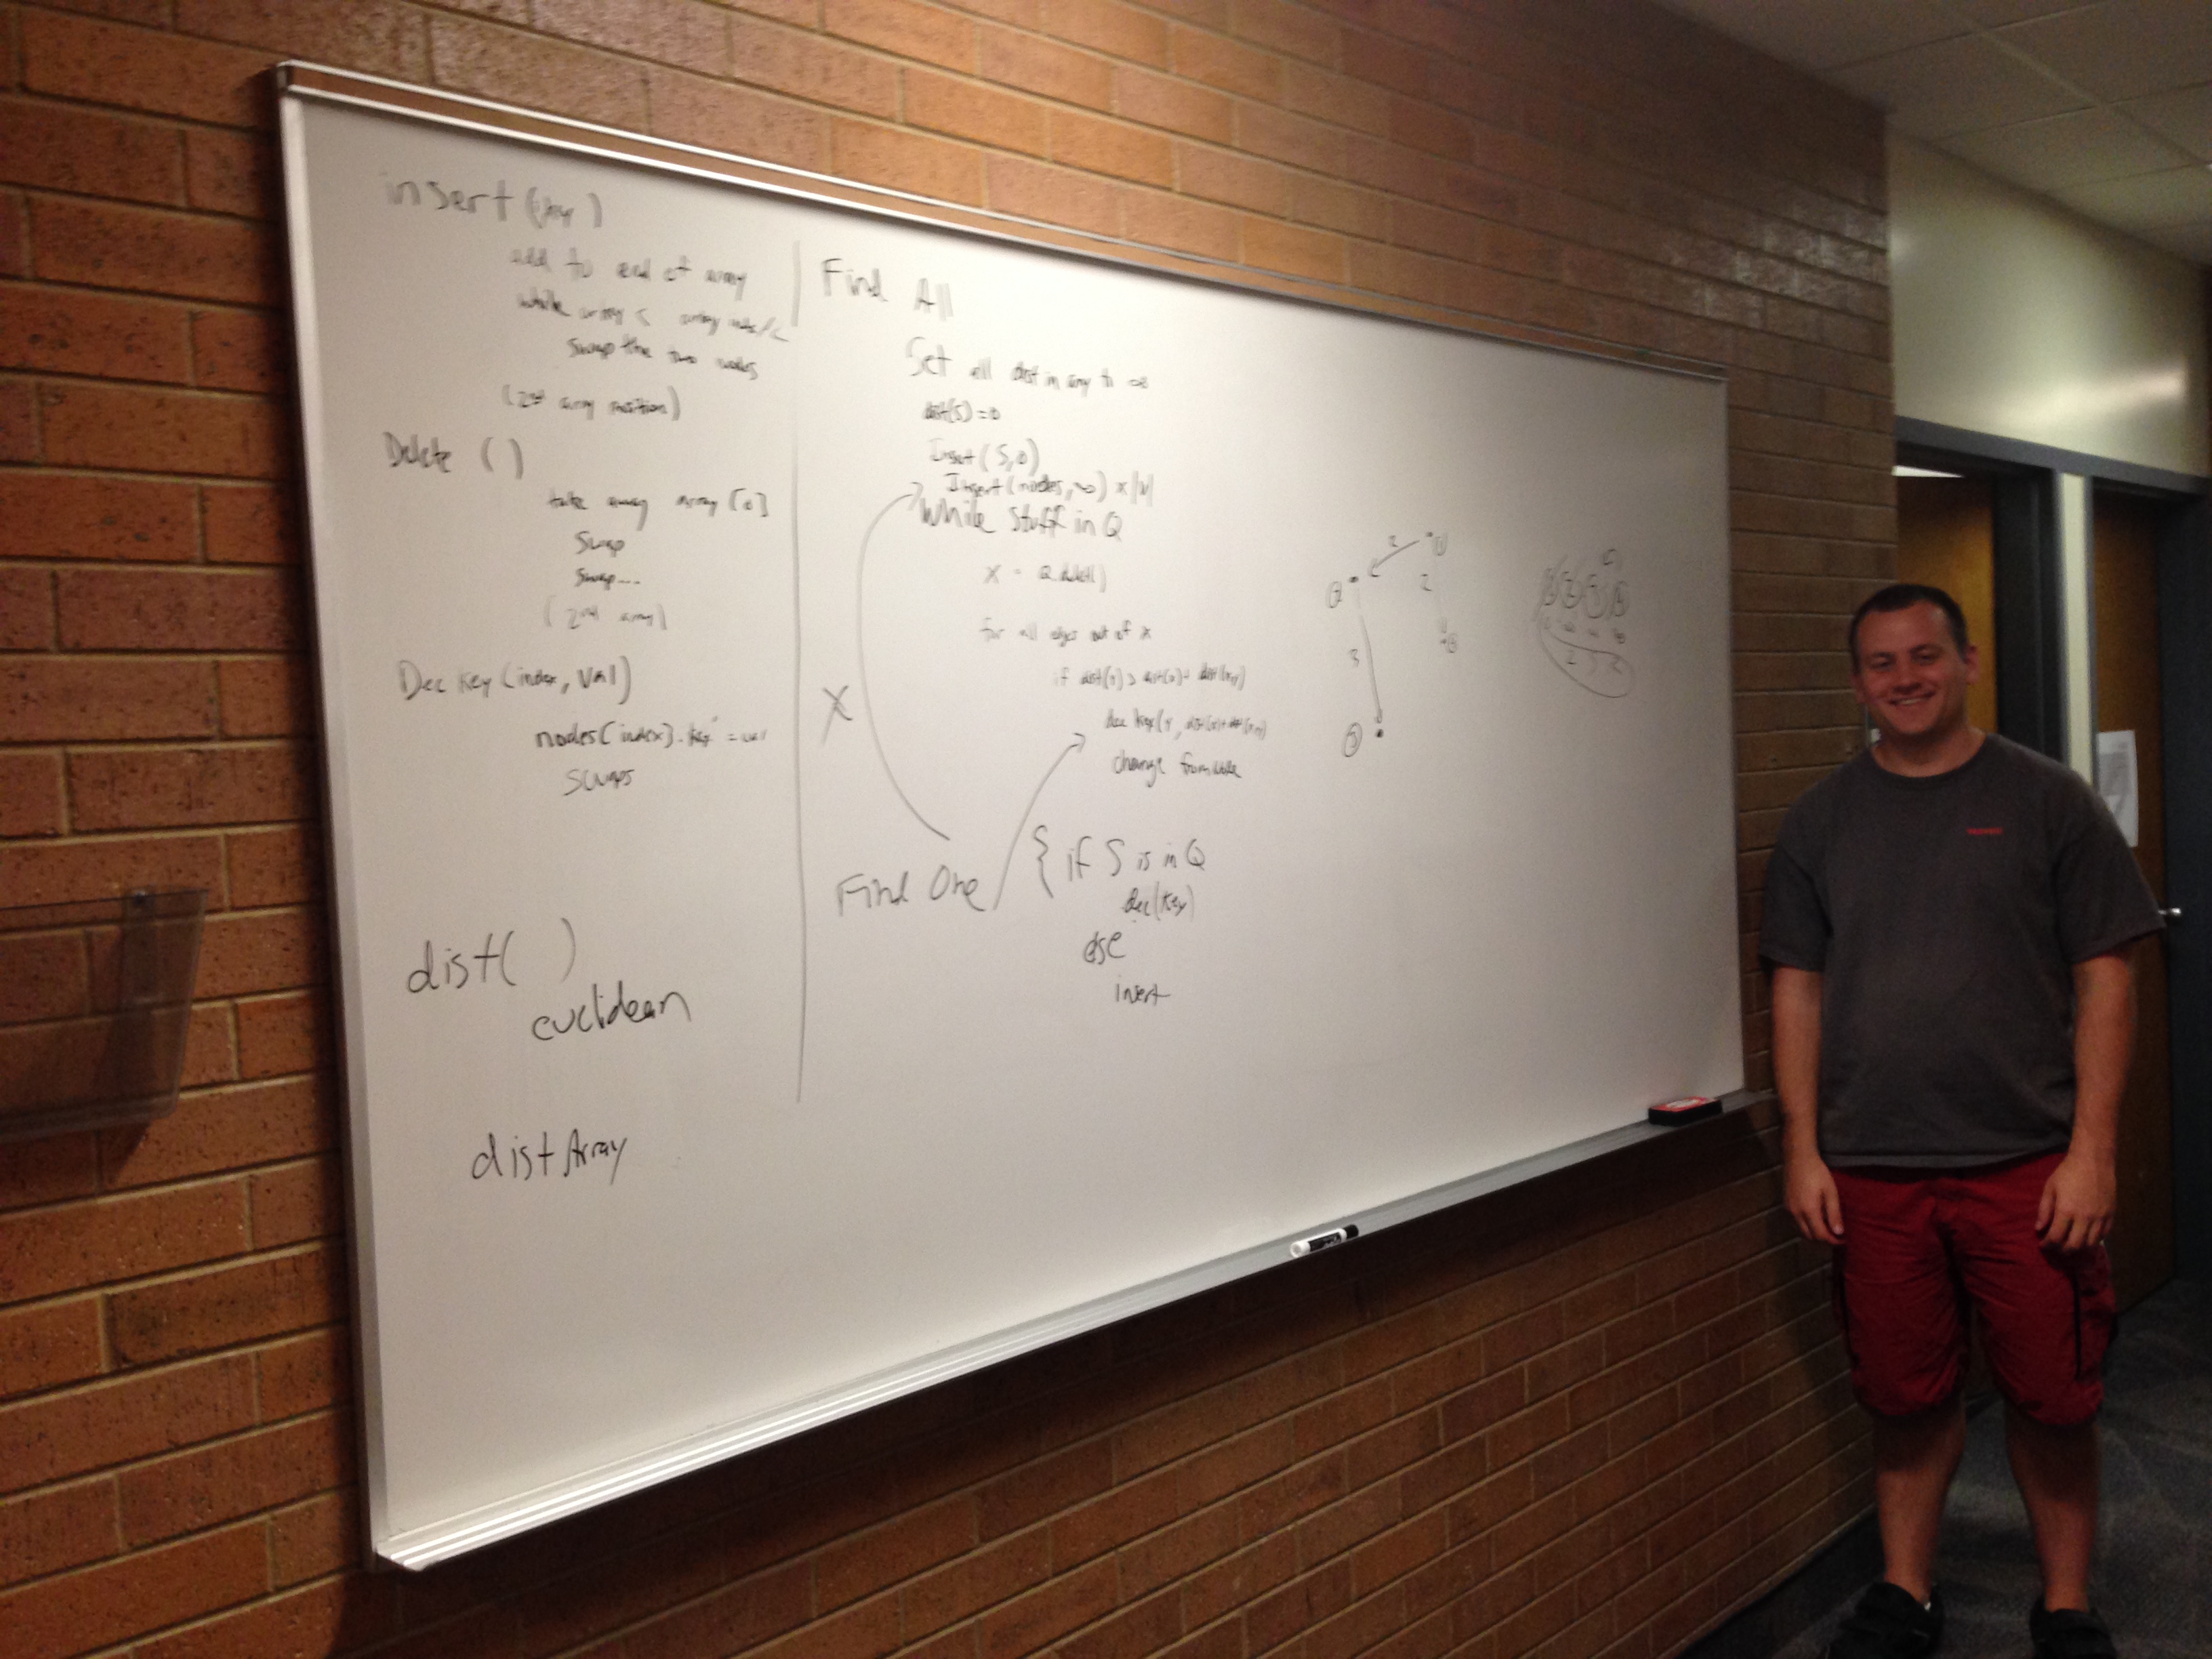 insert (key)
add to end of array
while array < array
swap the two nodes
(2nd array position)
Delete ( )
take away array [0]
Swap
Swap...
(2nd array)
Dec Key (index, val)
nodes[index].key = val
swaps
dist( )
euclidean
dist Array
Find All
Set all dist in array to ∞
dist(S) = 0
Insert (S, 0)
Insert (nodes, ∞) x |V|
While Stuff in Q
X = Q.delete()
for all edges out of x
if dist(y) > dist(x) +
dec key(y,
change
X
Find One
{ if S is in Q
dec(key)
else
insert
2
1
2
2
3
3